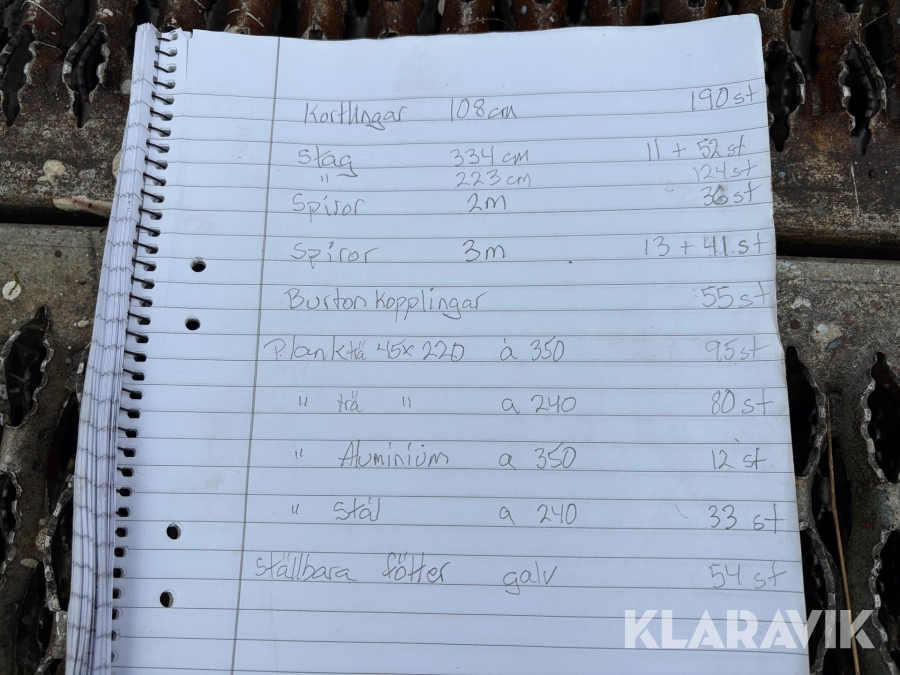 Kortlingar 108cm 190st
Stag 334cm 11 + 52st
" 223cm 124st
Spiror 2m 36st
Spiror 3m 13 + 41st
Burton kopplingar 55st
Plank trä 45x220 á 350 95st
" trä " a 240 80st
" Aluminium a 350 12st
" Stål a 240 33st
Ställbara fötter galv 54st
KLARAVIK